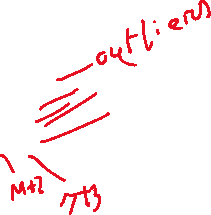 outliers
M+2
7+3